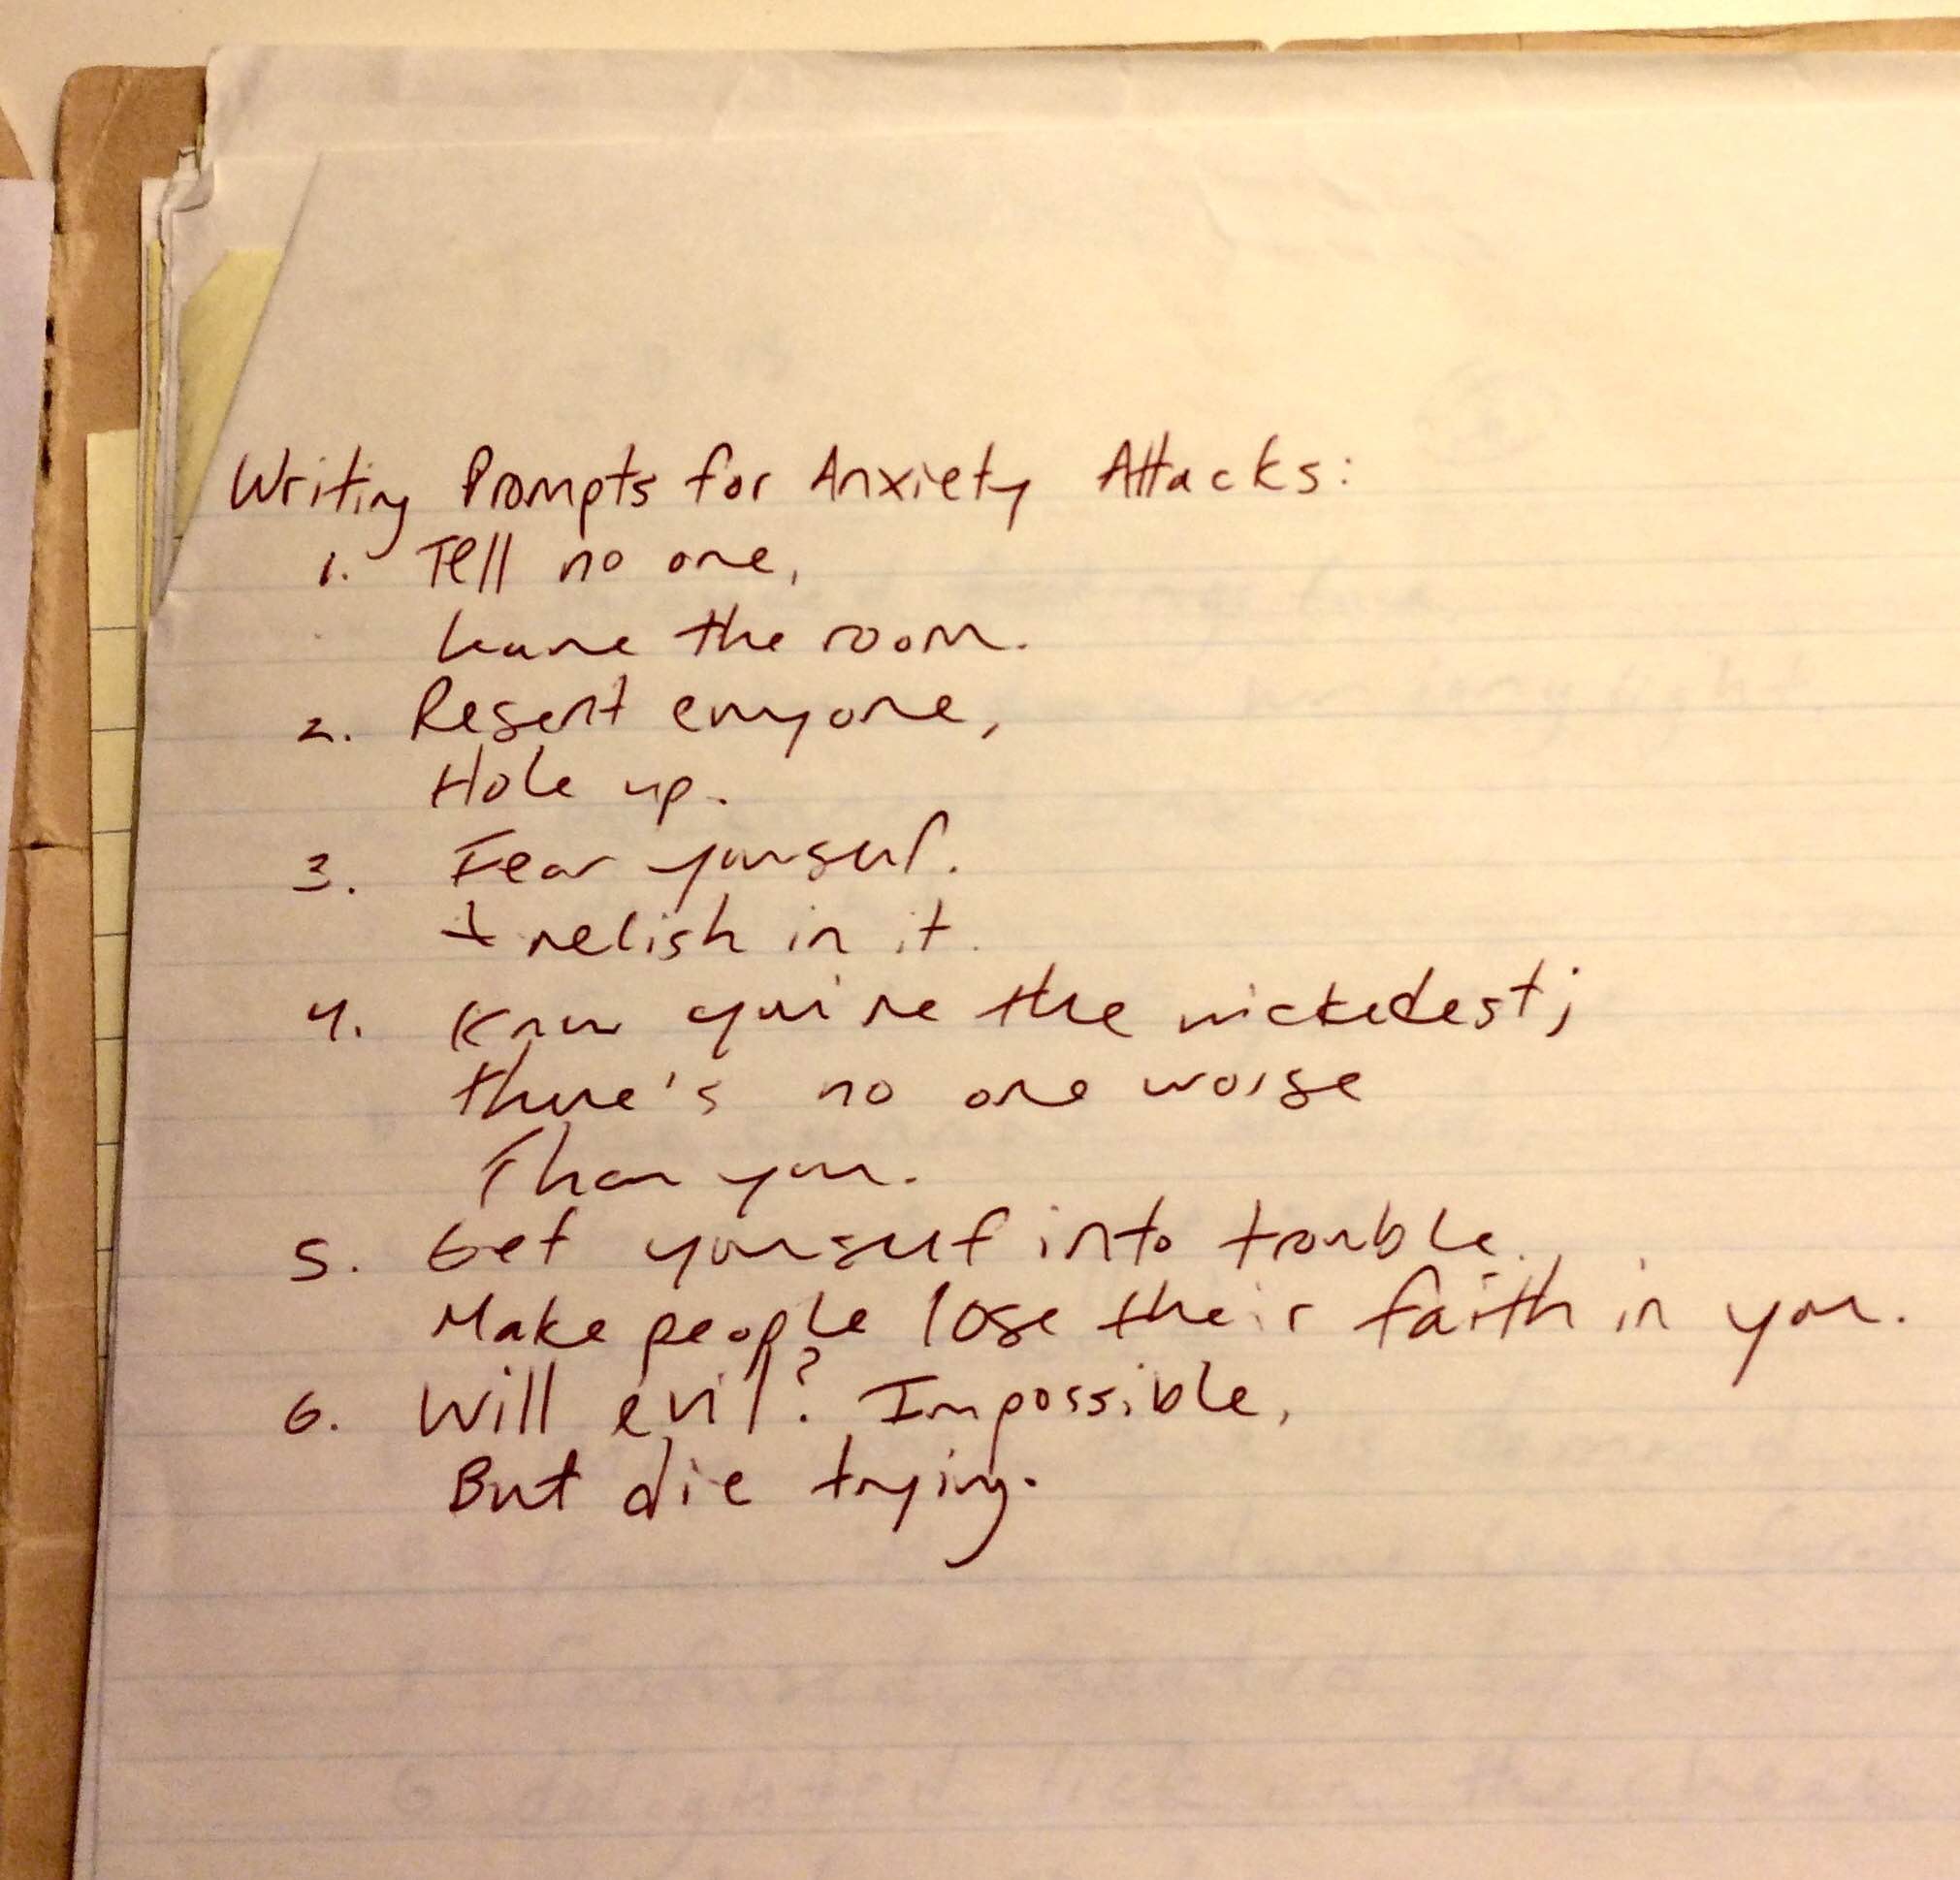 Writing Prompts for Anxiety Attacks:
1. Tell no one,
leave the room.
2. Resent everyone,
Hole up.
3. Fear yourself.
& relish in it.
4. Know you're the wickedest;
there's no one worse
Than you.
5. Get yourself into trouble.
Make people lose their faith in you.
6. Will evil? Impossible,
But die trying.